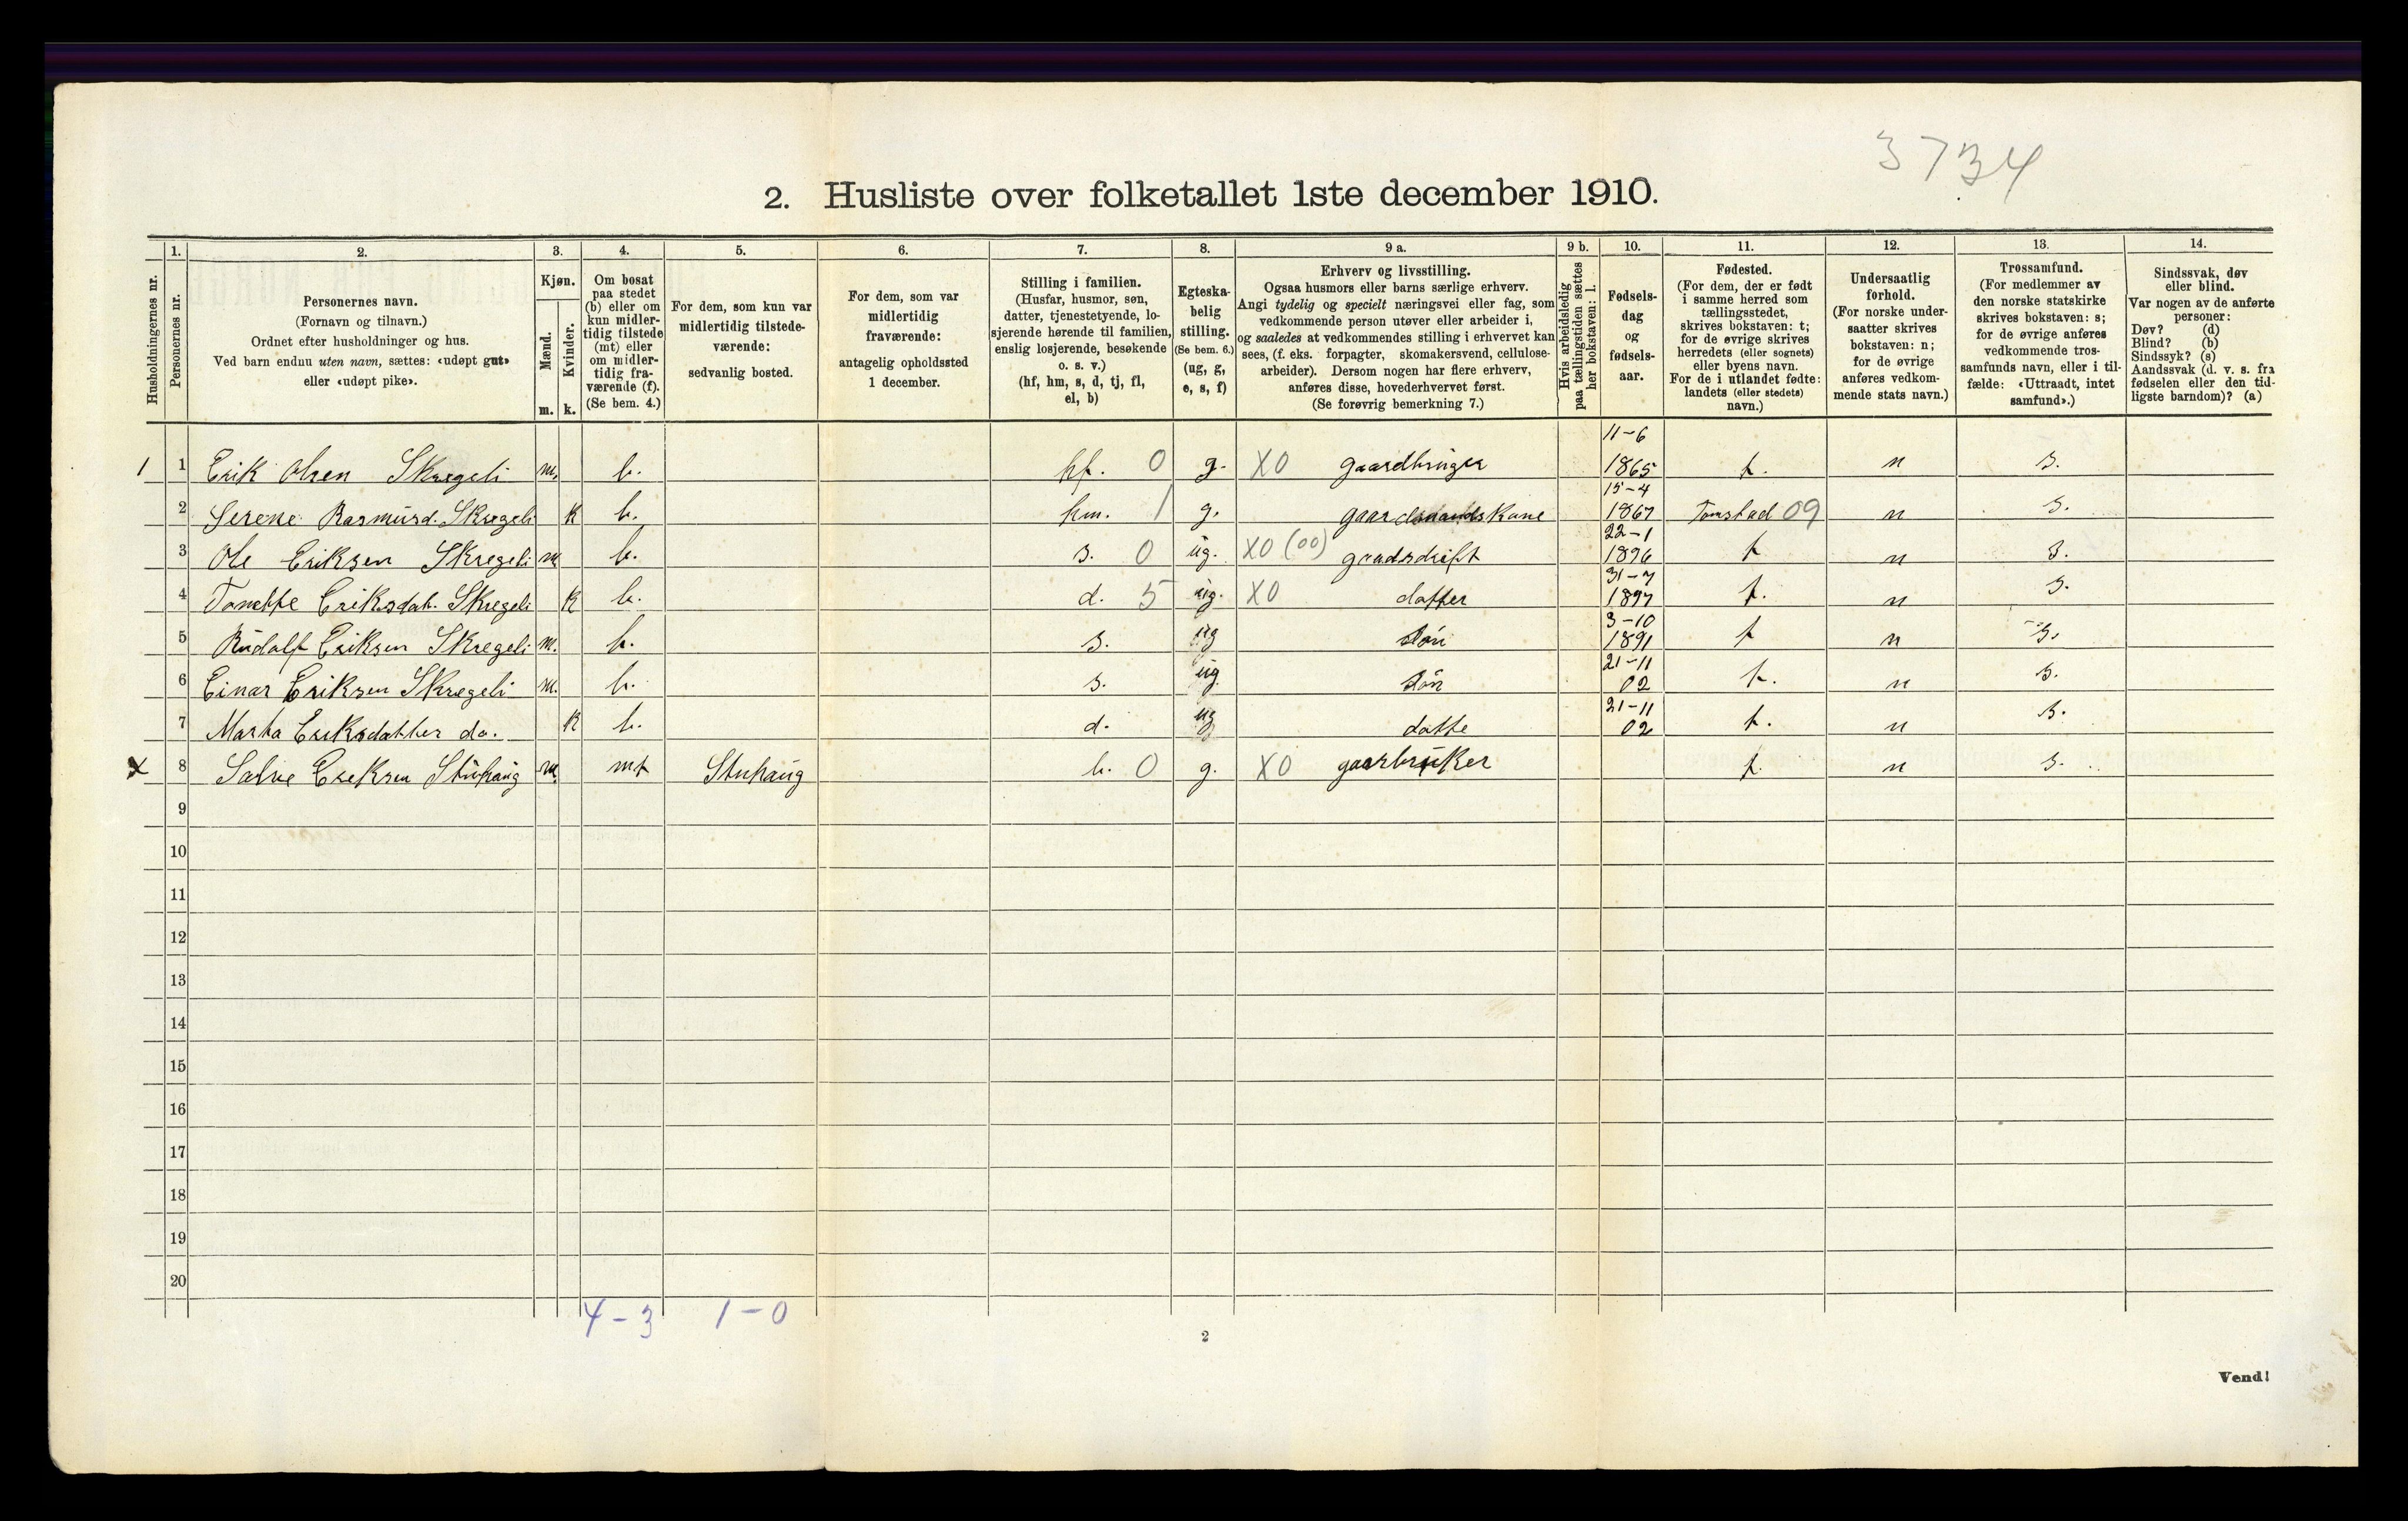 3734
2. Husliste over folketallet 1ste december 1910.
1. 2. 3. 4. 5. 6. 7. 8. 9 a. 9 b. 10. 11. 12. 13. 14.
Husholdningernes nr.
Personernes nr.
Personernes navn.
(Fornavn og tilnavn.)
Ordnet efter husholdninger og hus.
Ved barn endnu uten navn, sættes: «udøpt gut»
eller «udøpt pike».
Kjøn.
Mænd.
Kvinder.
m. k.
Om bosat
paa stedet
(b) eller om
kun midler-
tidig tilstede
(mt) eller
om midler-
tidig fra-
værende (f).
(Se bem. 4.)
For dem, som kun var
midlertidig tilstede-
værende:
sedvanlig bosted.
For dem, som var
midlertidig
fraværende:
antagelig opholdssted
1 december.
Stilling i familien.
(Husfar, husmor, søn,
datter, tjenestetyende, lo-
sjerende hørende til familien,
enslig losjerende, besøkende
o. s. v.)
(hf, hm, s, d, tj, fl,
el, b)
Egteska-
belig
stilling.
(Se bem. 6.)
(ug, g,
e, s, f)
Erhverv og livsstilling.
Ogsaa husmors eller barns særlige erhverv.
Angi tydelig og specielt næringsvei eller fag, som
vedkommende person utøver eller arbeider i,
og saaledes at vedkommendes stilling i erhvervet kan
sees, (f. eks. forpagter, skomakersvend, cellulose-
arbeider). Dersom nogen har flere erhverv,
anføres disse, hovederhvervet først.
(Se forøvrig bemerkning 7.)
Hvis arbeidsledig
paa tællingstiden sættes
her bokstaven: l.
Fødsels-
dag
og
fødsels-
aar.
Fødested.
(For dem, der er født
i samme herred som
tællingsstedet,
skrives bokstaven: t;
for de øvrige skrives
herredets (eller sognets)
eller byens navn.
For de i utlandet fødte:
landets (eller stedets)
navn.)
Undersaatlig
forhold.
(For norske under-
saatter skrives
bokstaven: n;
for de øvrige
anføres vedkom-
mende stats navn.)
Trossamfund.
(For medlemmer av
den norske statskirke
skrives bokstaven: s;
for de øvrige anføres
vedkommende tros-
samfunds navn, eller i til-
fælde: «Uttraadt, intet
samfund».)
Sindssvak, døv
eller blind.
Var nogen av de anførte
personer:
Døv? (d)
Blind? (b)
Sindssyk? (s)
Aandssvak (d. v. s. fra
fødselen eller den tid-
ligste barndom)? (a)
1 1 Erik Olsen Skregeli m. b. hf. 0 g. X0 gaardbruger 11-6 1865 t. n s.
2 Serene Rasmusd. Skregeli k b. hm. 1 g. gaardmandskone 15-4 1867 Tonstad 09 n s.
3 Ole Eriksen Skregeli m b. s. 0 ug. X0 (00) gaardsdrift 22-1 1896 t n s.
4 Tonette Eriksdat. Skregeli k b. d. 5 ug. X0 datter 31-7 1897 t. n s.
5 Rudolf Eriksen Skregeli m. b. s. ug søn 3-10 1891 t n s.
6 Einar Eriksen Skregeli m. b. s. ug søn 21-11 02 t. n s.
7 Marta Eriksdatter do. k b. d. ug datte 21-11 02 t. n s.
X 8 Salve Eriksen Stuhaug m. mt Stuhaug b. 0 g. X0 gaarbruker t. n s.
9
10
11
12
13
14
15
16
17
18
19
20
4-3 1-0
2
Vend!